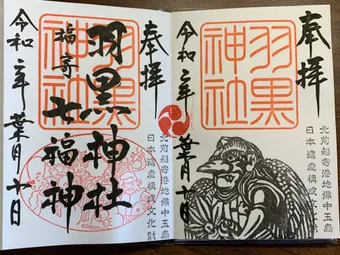 奉拝
羽黒
神社
令和二年葉月十日
北前船寄港地備中玉島
日本遺産構成文化財
奉拝
羽黒
神社
羽黒神社
福寿七福神
令和二年葉月十日
北前船寄港地備中玉島
日本遺産構成文化財